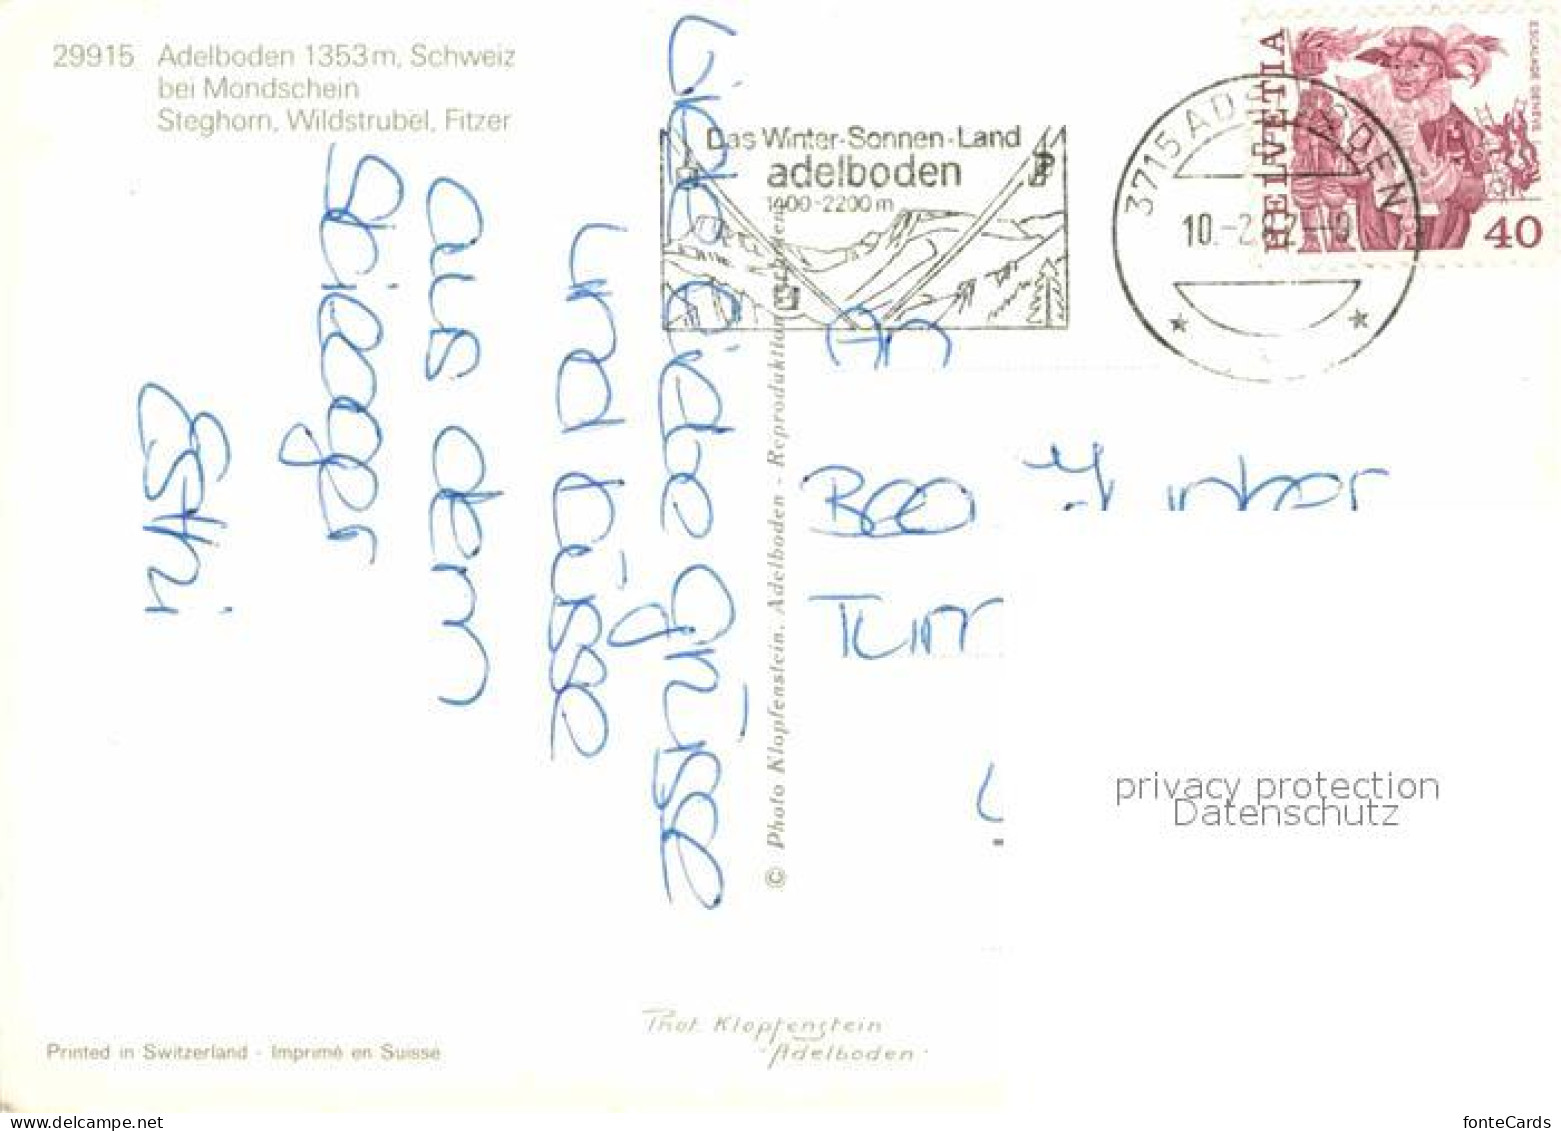 29915 Adelboden 1353 m, Schweiz
bei Mondschein
Steghorn, Wildstrubel, Fitzer
Das Winter-Sonnen-Land
adelboden
1400-2200 m
3715 ADELBODEN
10.-2.82-
HELVETIA
ESCALADE GENÈVE
40
Viele liebe Grüsse
und Küsse
aus dem
Skilager
An
© Photo Klopfenstein, Adelboden - Reproduktion verboten
privacy protection
Datenschutz
Phot. Klopfenstein
Adelboden.
Printed in Switzerland - Imprimé en Suisse
www.delcampe.net
fonteCards